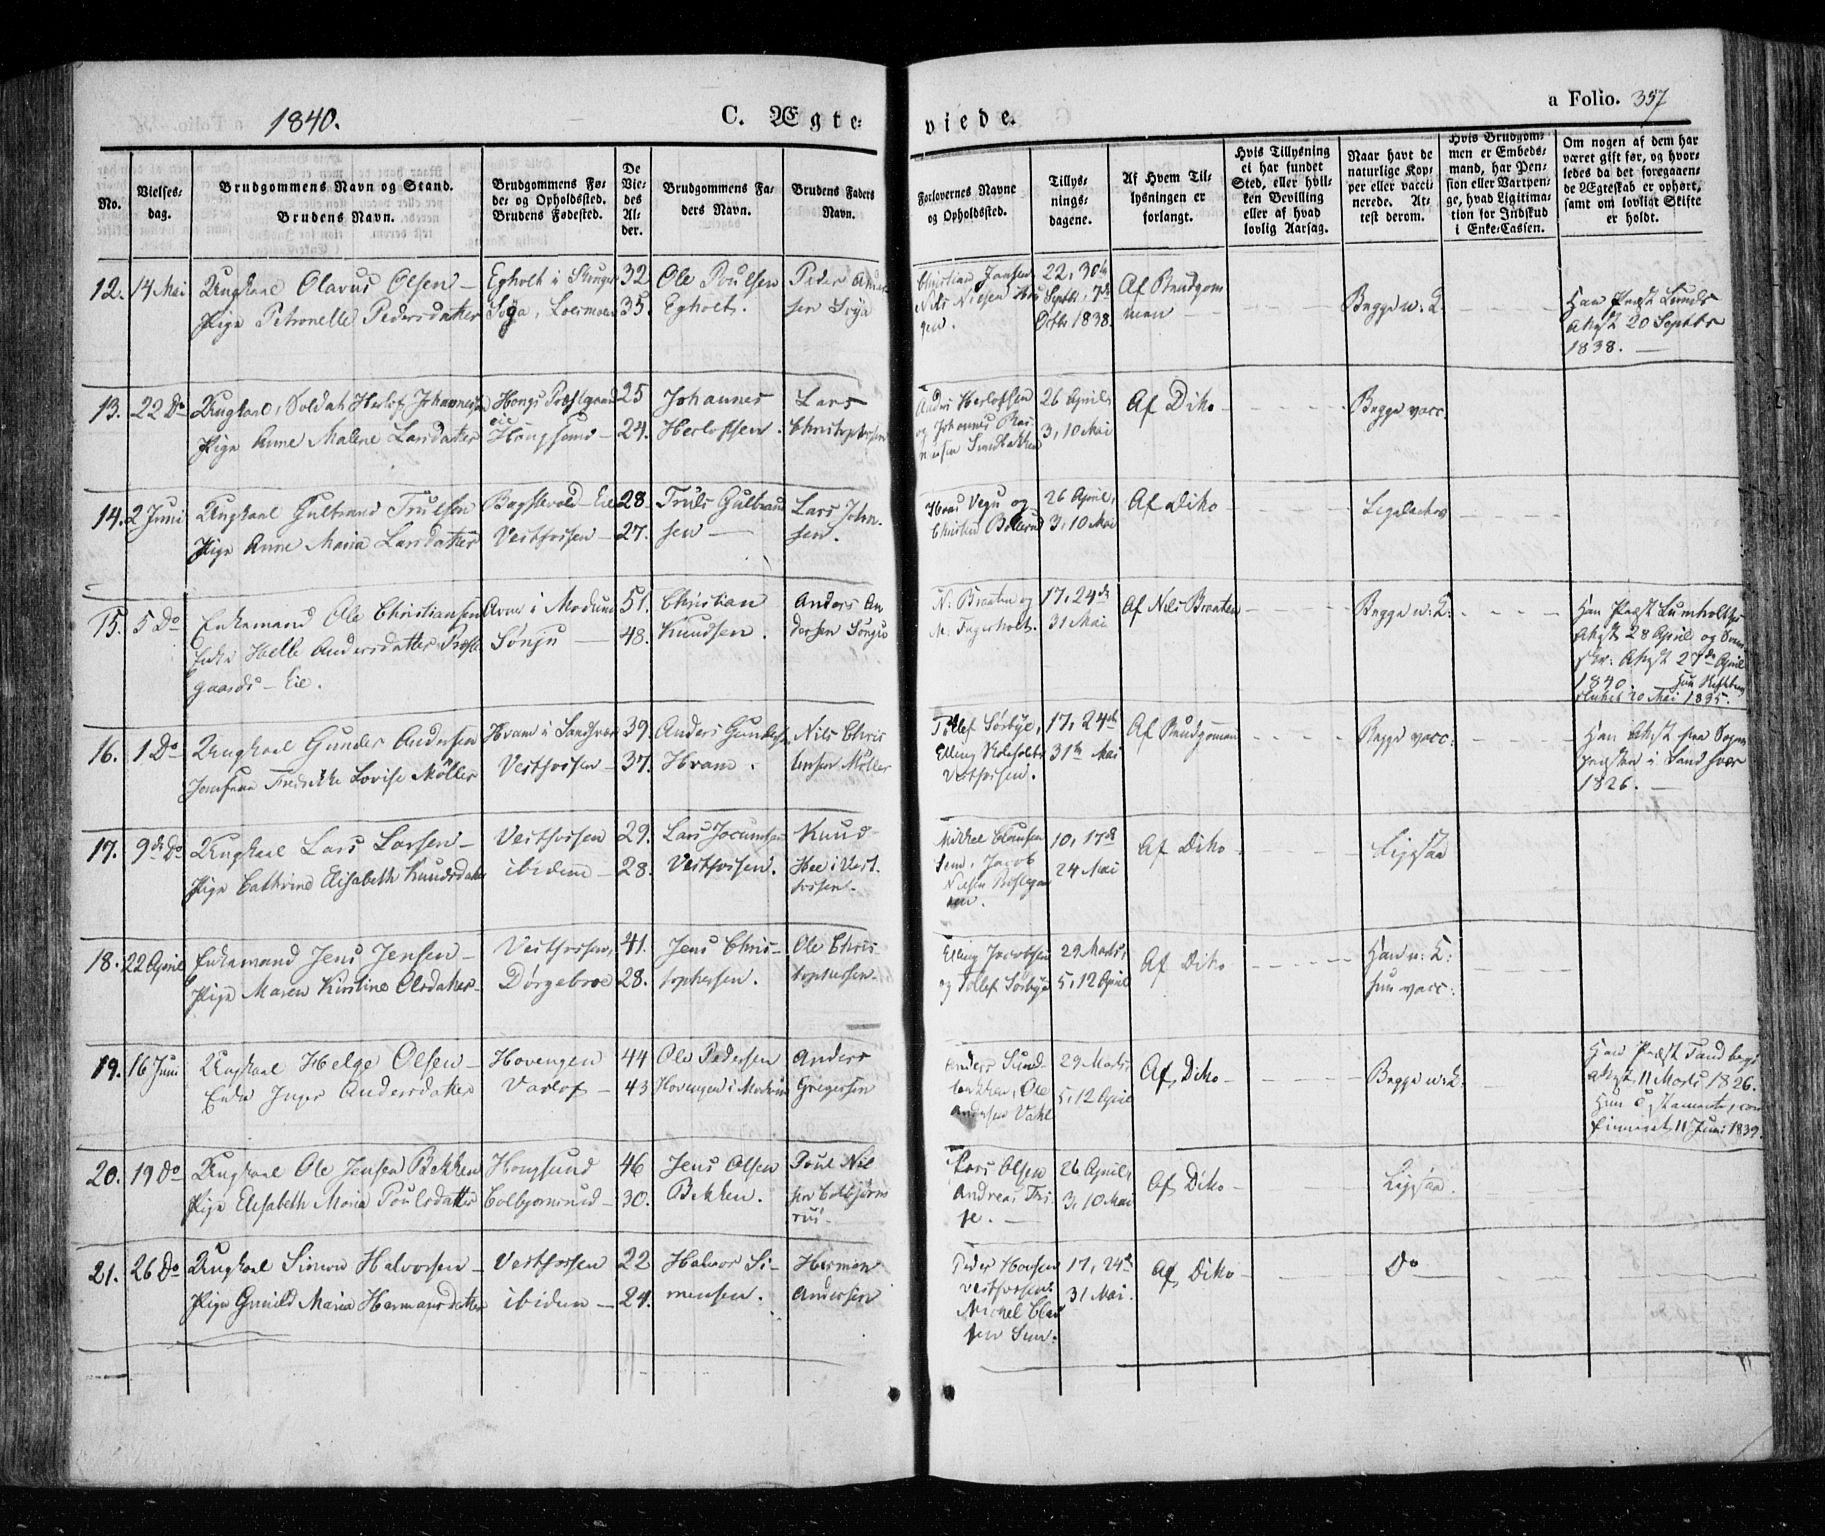 1840.
C. Ægte-
viede.
a Folio. 357
No.
Vielses-
dag.
Brudgommens Navn og Stand.
Brudens Navn.
Brudgommens Fø-
de- og Opholdssted.
Brudens Fødested.
De
Vie-
des
Al-
der.
Brudgommens Fa-
ders Navn.
Brudens Faders
Navn.
Forlovernes Navne
og Opholdssted.
Tillys-
nings-
dagene.
Af Hvem Til-
lysningen er
forlangt.
Hvis Tillysning
ei har fundet
Sted, eller hvil-
ken Bevilling
eller af hvad
lovlig Aarsag.
Naar havt de
naturlige Kop-
per eller vacci-
nerede. At-
test derom.
Hvis Brudgom-
men er Embeds-
mand, har Pen-
sion eller Vartpen-
ge, hvad Legitima-
tion for Indskud
i Enke-Cassen.
Om nogen af dem har
været gift før, og hvor-
ledes da det foregaaen-
de Ægteskab er ophørt,
samt om lovligt Skifte
er holdt.
12. 14 Mai
Ungkarl Olavus Olsen
Pige Petronelle Pedersdatter
Egholt i
32
35.
Ole Poulsen
Egholt.
Peder
sen
Christian Jansen
22, 30te
Septbr, 7de
Octbr 1838.
Af Brudgom
men
Begge n: K.
Han Præst Lunds
Attest 20 Septbr
1838.
13. 22 Do
Ungkarl, Soldat Herlof Johannesen
Pige Anne Malene Larsdatter
Hougsund
25
24.
Johannes
Herlofsen.
Lars
Christophersen
Anders Herlofsen
og Johannes
26 April,
3, 10 Mai
Af Dito
Begge vacc:
14. 2 Juni
Ungkarl Gulbrand Trulsen
Pige Anne Maria Larsdatter
Eie
Vestfossen
28
27.
Truls Gulbrand
sen
Lars John
sen.
og
Christen
26 April,
3, 10 Mai
Af Dito
Ligeledes
15. 5 Do
Enkemand Ole Christiansen
Enke Helle Andersdatter Præste
gaards Eie.
i Modum
51.
48.
Christian
Knudsen.
Anders An
dersen
N. Braaten og
M. Fagerholt.
17, 24de
31 Mai
Af Nils Braaten
Begge n: K:
Han Præst Lumholtz's
Attest 28 April og
Attest 27de April
1840. Hun
20 Mai 1835.
16. 1 Do
Ungkarl Gunder Andersen
Jomfrue Fredrikke Lovise Møller
Hvam i Sandsvær
Vestfossen
39.
37.
Anders Gundersen
Hvam.
Nils Chris
tensen Møller
Tollef Sørbye,
Elling
Vestfossen.
17, 24de
31te Mai
Af Brudgommen
Begge vacc:
Han Attest fra Sogne
præsten i Sandsvær
1826.
17. 9de Do
Ungkarl Lars Larsen
Pige Cathrine Elisabeth Knudsdatter
Vestfossen
ibidem
29.
28.
Lars Jocumsen
Vestfossen.
Knud
i Vest
fossen.
Mikkel Clausen
Sem, Jacob
Nielsen
10, 17de
24 Mai
Af Dito
Ligesaa
18. 22 April
Enkemand Jens Jensen
Pige Maren Kirstine Olsdatter
Vestfossen,
Dørgebroe
41.
28.
Jens Chris
tophersen.
Ole Chris
tophersen
Elling Jacobsen
og Tollef Sørbye
29 Marts,
5, 12 April
Af Dito
Han n: K:
hun vacc:
19. 16 Juni
Ungkarl Helge Olsen
Enke Inger Andersdatter
Hovengen
Varlof
44
43
Ole Pedersen
Hovengen i Modum
Anders
Gregersen
Anders Sund
bakken, Ole
Andersen
29 Marts,
5, 12 April
Af Dito
Begge n: K:
Han Præst Tandbergs
Attest 11 Marts 1826.
Hun con
firmeret 11 Juni 1839.
20. 19 Do
Ungkarl Ole Jensen Bekken
Pige Elisabeth Maria Poulsdatter
Hougsund
Colbjørnsrud
46
30.
Jens Olsen
Bekken.
Poul Niel
sen Colbjørns
rud
Lars Olsen
Andreas
26 April,
3, 10 Mai
Af Dito
Ligesaa.
21. 26 Do
Ungkarl Simon Halvorsen
Pige Gunild Maria Hermansdatter
Vestfossen
ibidem
22
24.
Halvor Si
mensen.
Herman
Andersen
Peder Hansen
Vestfossen,
Michel Clau
sen Sem.
17, 24de
31 Mai.
Af Dito
Do